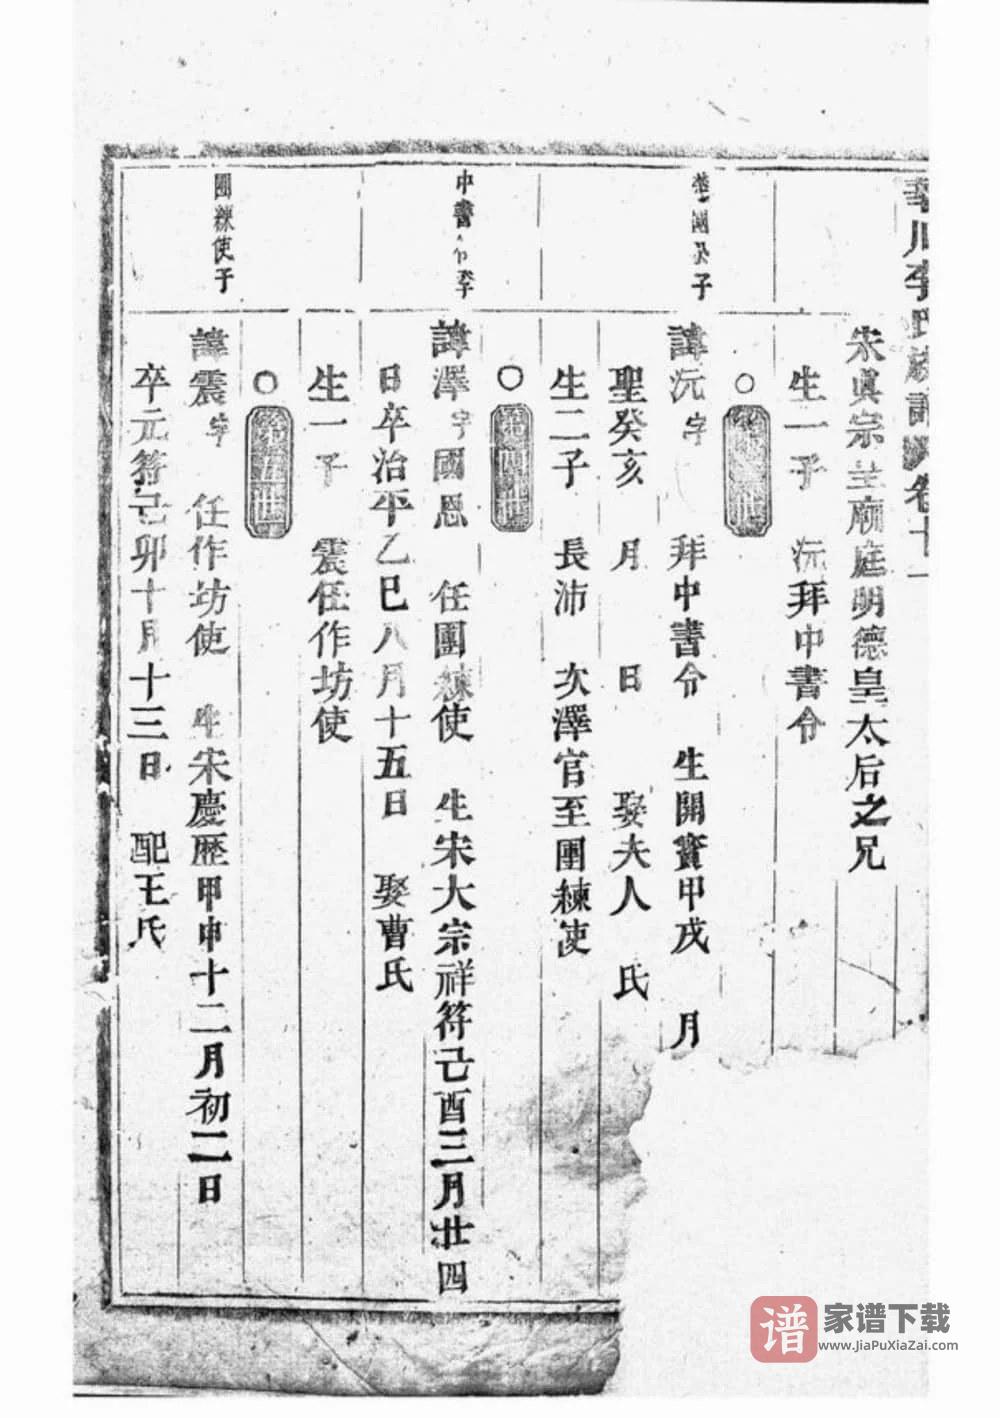 李氏族譜 卷十一
宋真宗主廟庭明德皇太后之兄
生一子 沅拜中書令
○
國公子
諱沅字 拜中書令 生開寶甲戌 月
聖癸亥 月 日 娶夫人 氏
生二子 長沛 次澤官至團練使
○ 第四世
中書令李
諱澤字國恩 任團練使 生宋大宗祥符己酉三月廿四
日卒治平乙巳八月十五日 娶曹氏
生一子 震任作坊使
○ 第五世
團練使子
諱震字 任作坊使 生宋慶歴甲申十二月初二日
卒元符己卯十月十三日 配王氏
谱 家谱下载
www.JiaPuXiaZai.com